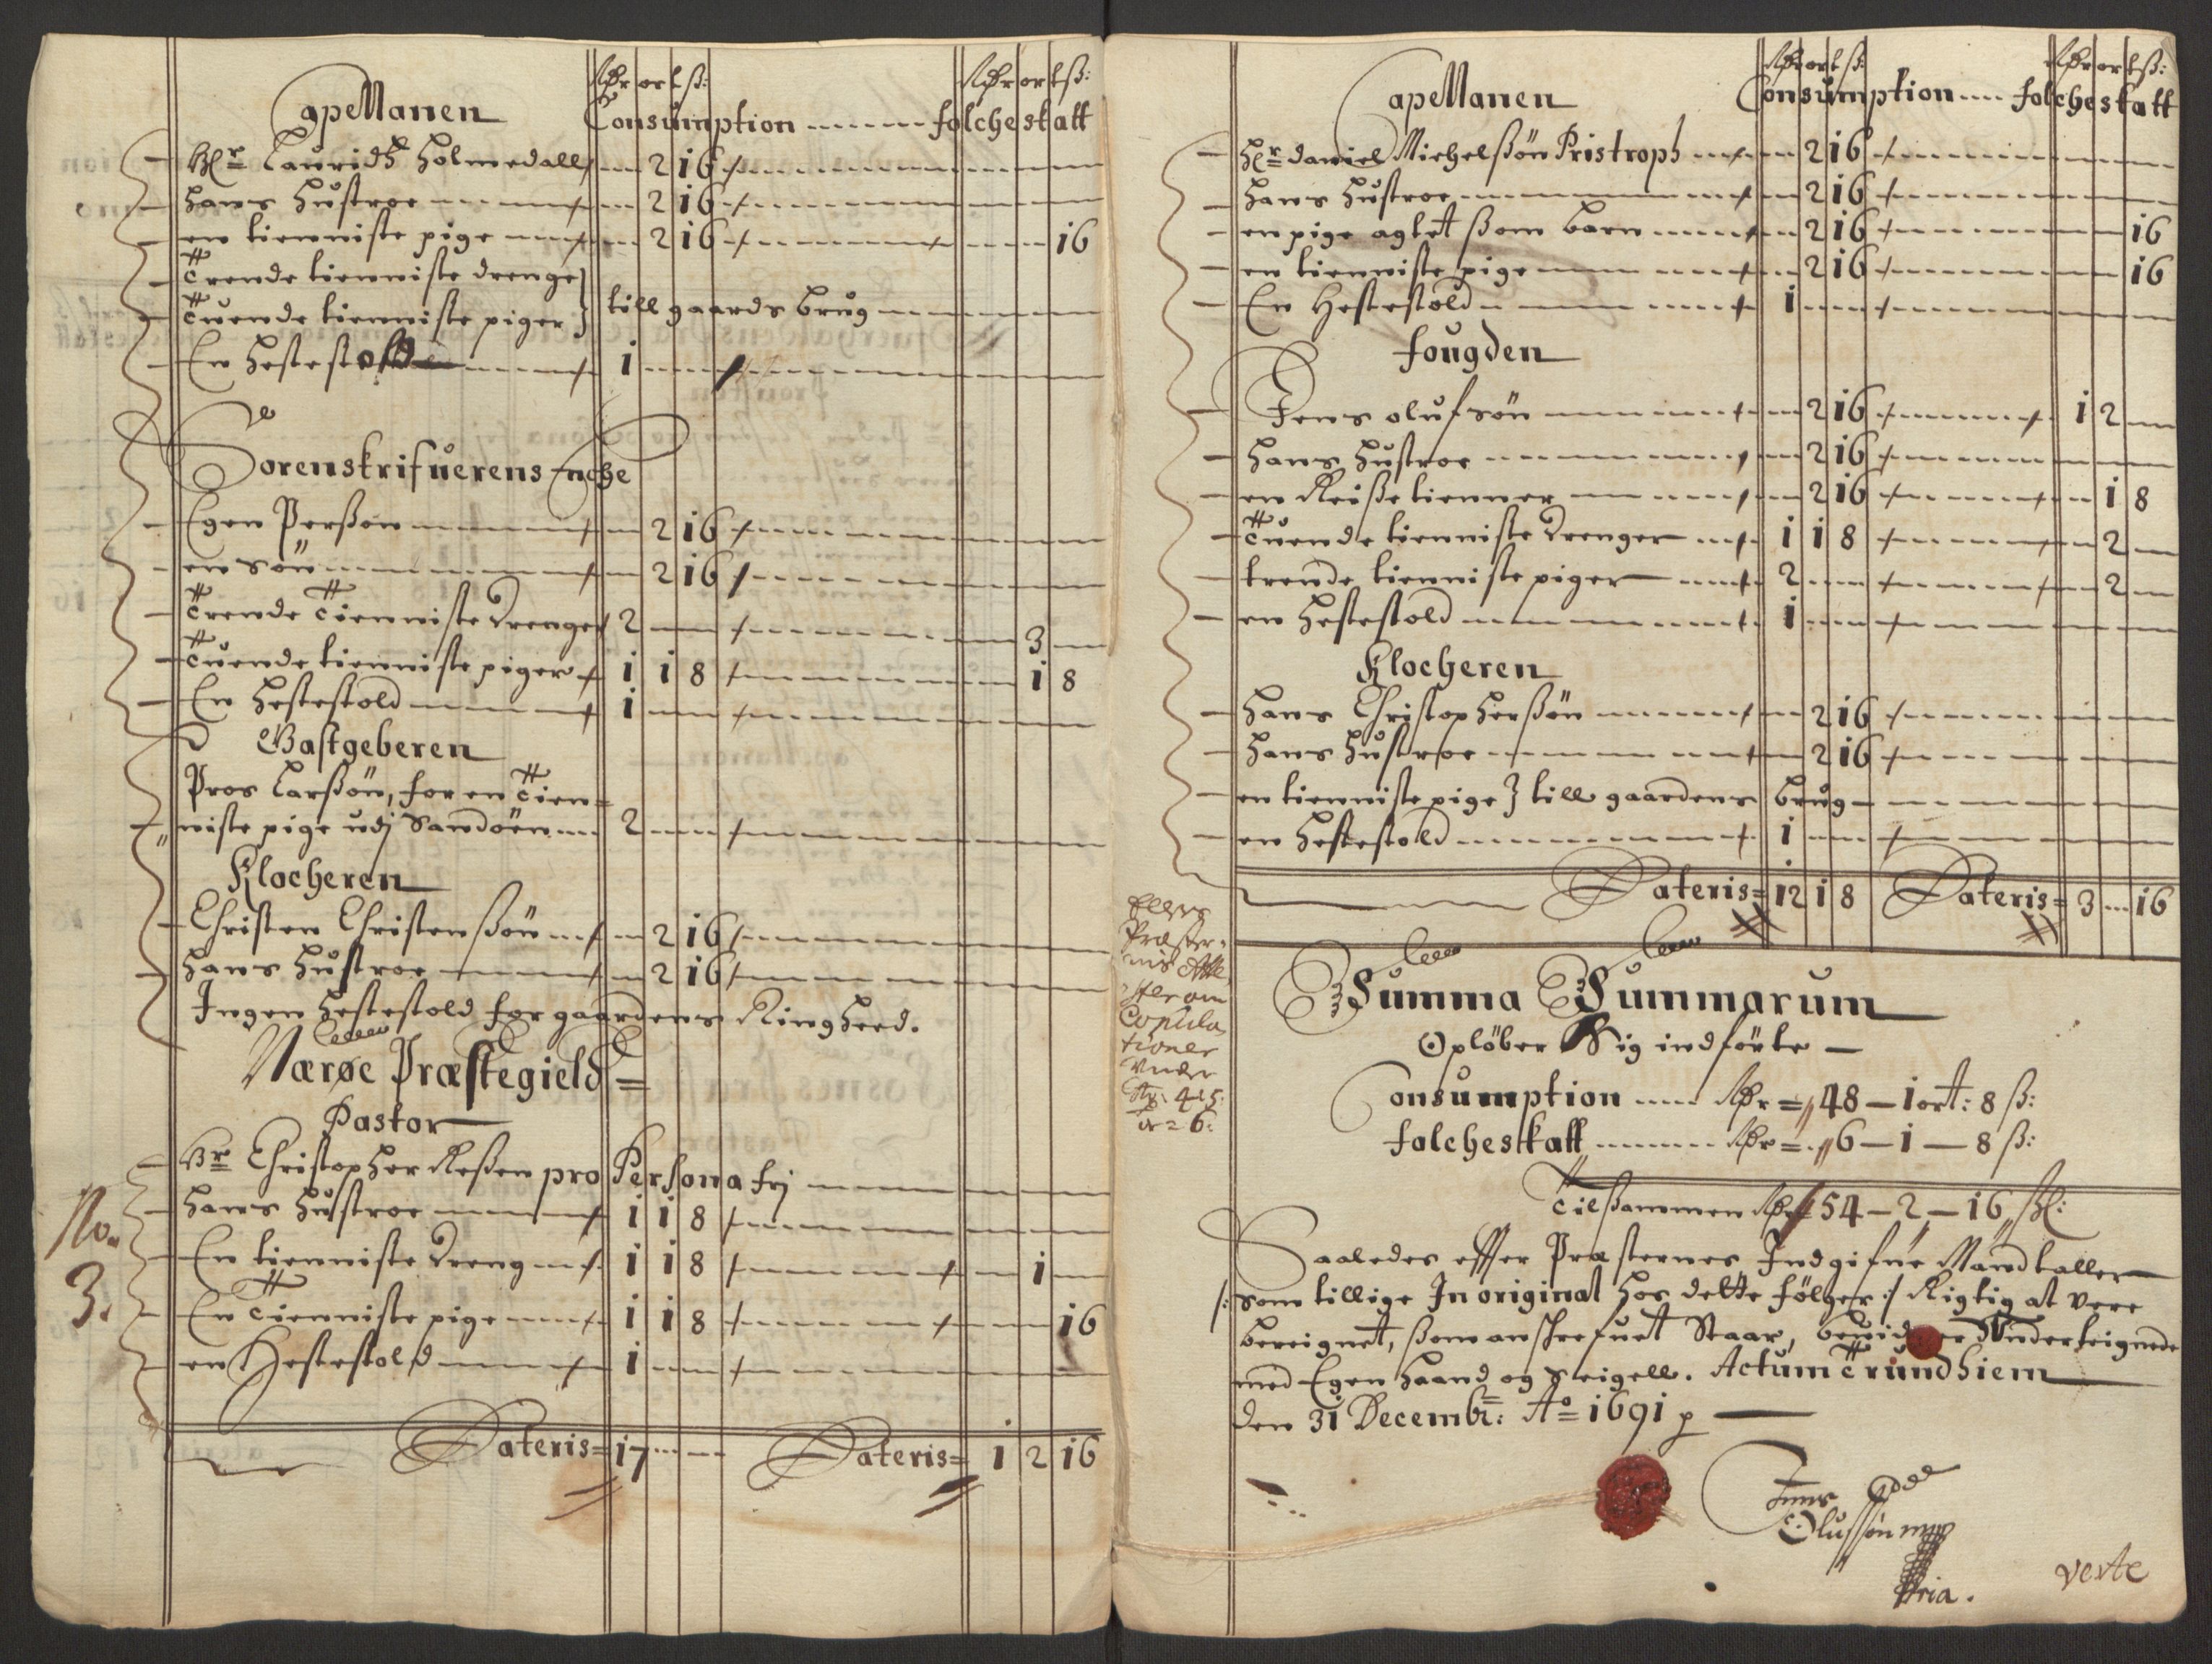 Rdr ort ß: Rdr ort ß:
Capellanen Consumption folcheskatt
Hr Lauridß Holmedall 2 16
Hans Hustroe 2 16
en tienniste pige 2 16 16
Trende tienniste drenge
Tuende tienniste piger } till gaards brug
En Hestestold 1
Sorenskrifuerens Enche
Egen Perßon 2 16
en Sön 2 16
Trende Tienniste drenge 2 3
Tuende tienniste piger 1 1 8 1 8
En Hestestold 1
Gastgeberen
Pros Larßön, for en Tien=
niste pige udj Sandöen 2
Klocheren
Christen Christenßön 2 16
Hans Hustroe 2 16
Ingen Hestestold for gaardens Ringheed.
Nærøe Præstegield =
Pastor
Hr Christopher Reßen pro Persona frj
No. Hans Hustroe 1 1 8
3. En tienniste dreng 1 1 8 1
En Tienniste pige 1 1 8 16
en Hestestold 1
Lateris= 17 Lateris= 1 2 16
Rdr ort ß: Rdr ort ß:
Capellanen Consumption folcheskatt
Hr Daniel Michelßön Pristroph 2 16
Hans Hustroe 2 16
en pige agtet ßom barn 2 16 16
en tienniste pige 2 16 16
En Hestestold 1
fougden
Jens olufsön 2 16 1 2
Hans Hustroe 2 16
en Reißetienner 2 16 1 8
Tuende tienniste drenger 1 1 8 2
trende tienniste piger 2 2
en Hestestold 1
Klocheren
Hans Christopherßön 2 16
Hans Hustroe 2 16
en tienniste pige } till gaardens brug
en Hestestold 1
Lateris= 12 1 8 Lateris= 3 16
Præster=
nis
om
Copula
tioner
under
415:
6:
Summa Summarum
Opløber Sig indförte
Consumption Rdr = 48 – 1 ort: 8 ß:
folcheskatt Rdr = 6 – 1 – 8 ß:
Tilsammen Rdr 54 – 2 – 16 ßl:
Saaledes effter Præsternes Indgifne Mandtaller
/: som tillige In original hos dette fölger :/ Rigtig at vere
bereignet, ßom anschrefuet Staar, Underteignede
med Egen Haand og Seigell. Actum Trundhiem
den 31 Decembr: Ao 1691 p
Jens
Olufsön mp
pria.
verte